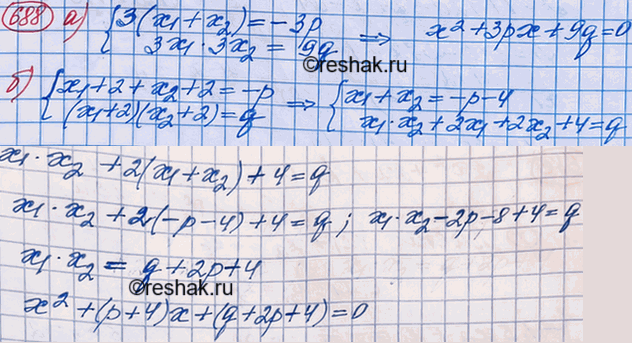 688 а) { 3(x₁ + x₂) = -3p
3x₁ · 3x₂ = 9q ⇒ x² + 3px + 9q = 0
©reshak.ru
б) { x₁ + 2 + x₂ + 2 = -p
(x₁+2)(x₂+2) = q ⇒ { x₁ + x₂ = -p - 4
x₁ · x₂ + 2x₁ + 2x₂ + 4 = q
x₁ · x₂ + 2(x₁ + x₂) + 4 = q
x₁ · x₂ + 2(-p - 4) + 4 = q ; x₁ · x₂ - 2p - 8 + 4 = q
x₁ · x₂ = q + 2p + 4
©reshak.ru
x² + (p + 4)x + (q + 2p + 4) = 0